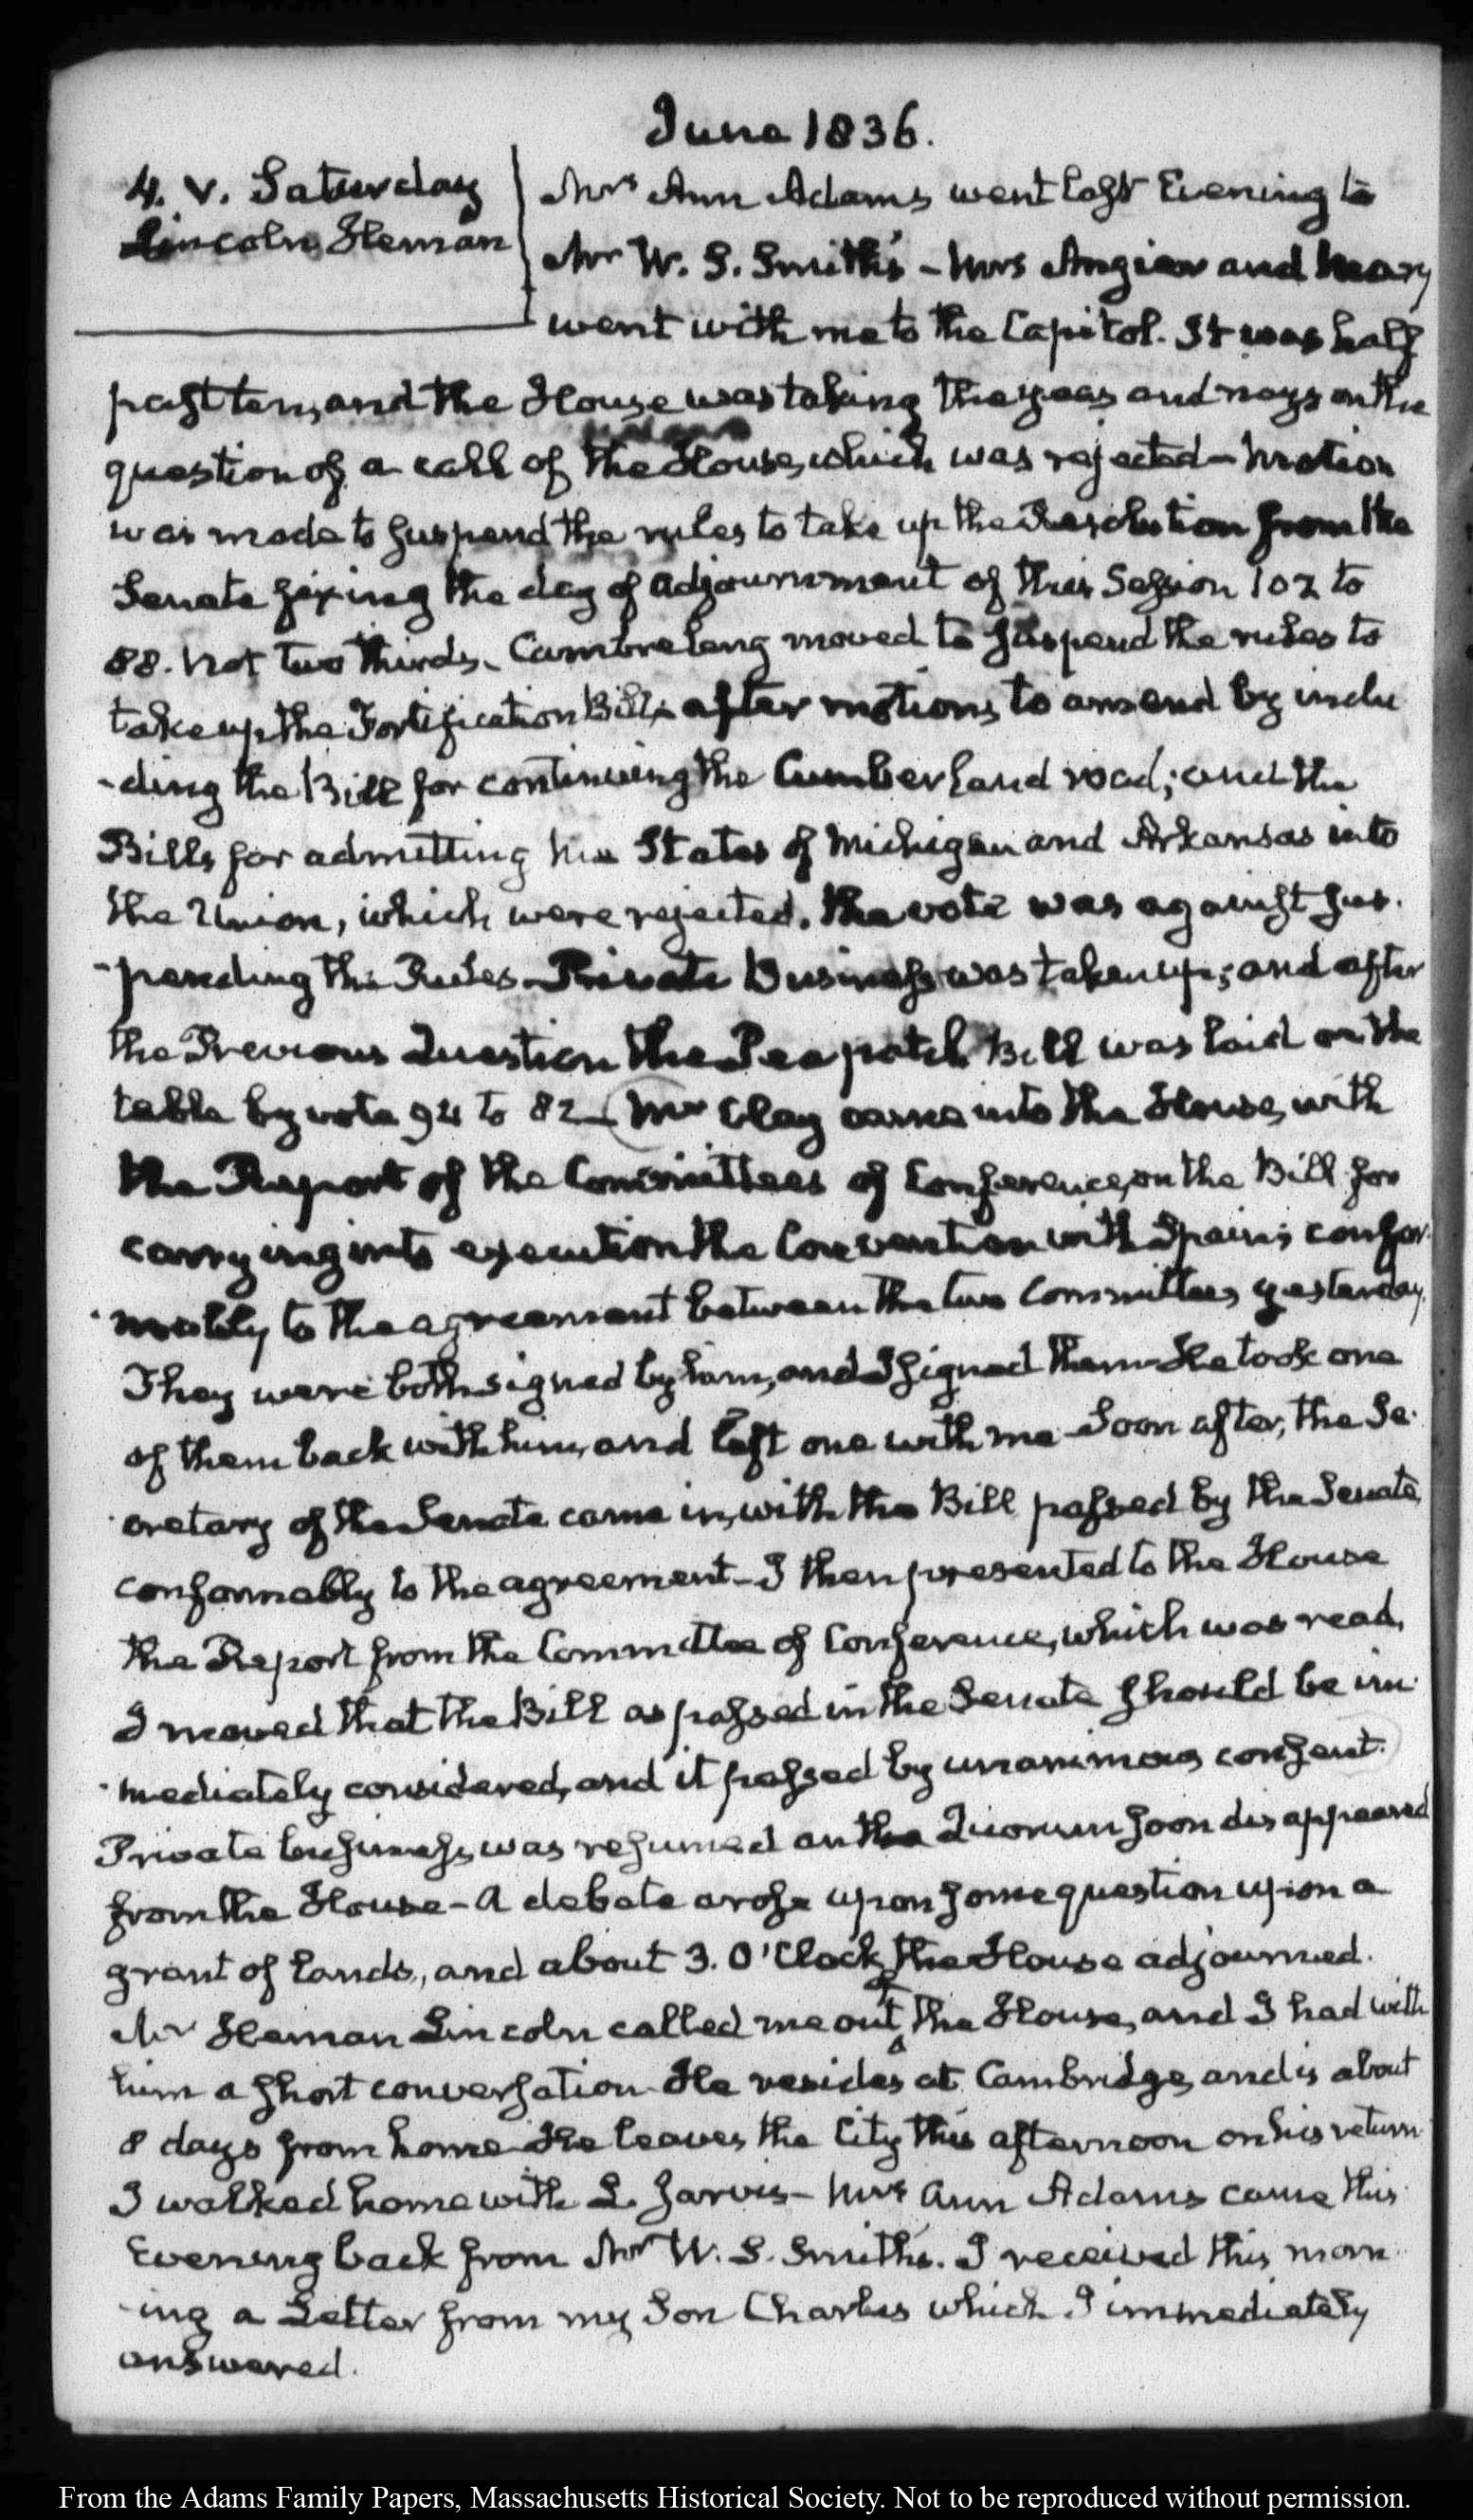 June 1836.
4. V. Saturday
Lincoln Heman
Mrs Ann Adams went last Evening to
Mr W. S. Smith's – Mrs Angier and Mary
went with me to the Capitol. It was half
past ten, and the House was taking the yeas and nays on the
question of a call of the House, which was rejected – Motion
was made to suspend the rules to take up the Resolution from the
Senate fixing the day of adjournment of this Session 102 to
88. not two thirds. Cambreleng moved to suspend the rules to
take up the Fortification Bills after motions to amend by inclu
-ding the Bill for continuing the Cumberland road; and the
Bills for admitting the States of Michigan and Arkansas into
the Union, which were rejected. the vote was against sus-
-pending the Rules – Private Business was taken up; and after
the Previous Question the Pea patch Bill was laid on the
table by vote 94 to 82 – Mr Clay came into the House, with
the Report of the Committees of Conference, on the Bill for
carrying into execution the Convention with Spain; confor-
-mably to the agreement between the two Committees yesterday.
They were both signed by him, and I signed them – He took one
of them back with him, and left one with me – Soon after, the Se-
-cretary of the Senate came in, with the Bill passed by the Senate,
conformably to the agreement – I then presented to the House
the Report from the Committee of Conference, which was read,
I moved that the Bill as passed in the Senate should be im-
-mediately considered, and it passed by unanimous consent.
Private business was resumed on the Quorum soon disappeared
from the House – A debate arose upon some question upon a
grant of lands, and about 3. O'Clock the House adjourned.
Mr Heman Lincoln called me out of the House, and I had with
him a short conversation – He resides at Cambridge, and is about
8 days from home – He leaves the City this afternoon on his return
I walked home with L. Jarvis – Mrs Ann Adams came this
Evening back from Mr W. S. Smith's. I received this morn-
-ing a Letter from my Son Charles which I immediately
answered.
From the Adams Family Papers, Massachusetts Historical Society. Not to be reproduced without permission.